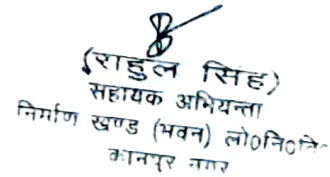 (राहुल सिंह)
सहायक अभियन्ता
निर्माण खण्ड (भवन) लो०नि०वि०
कानपुर नगर